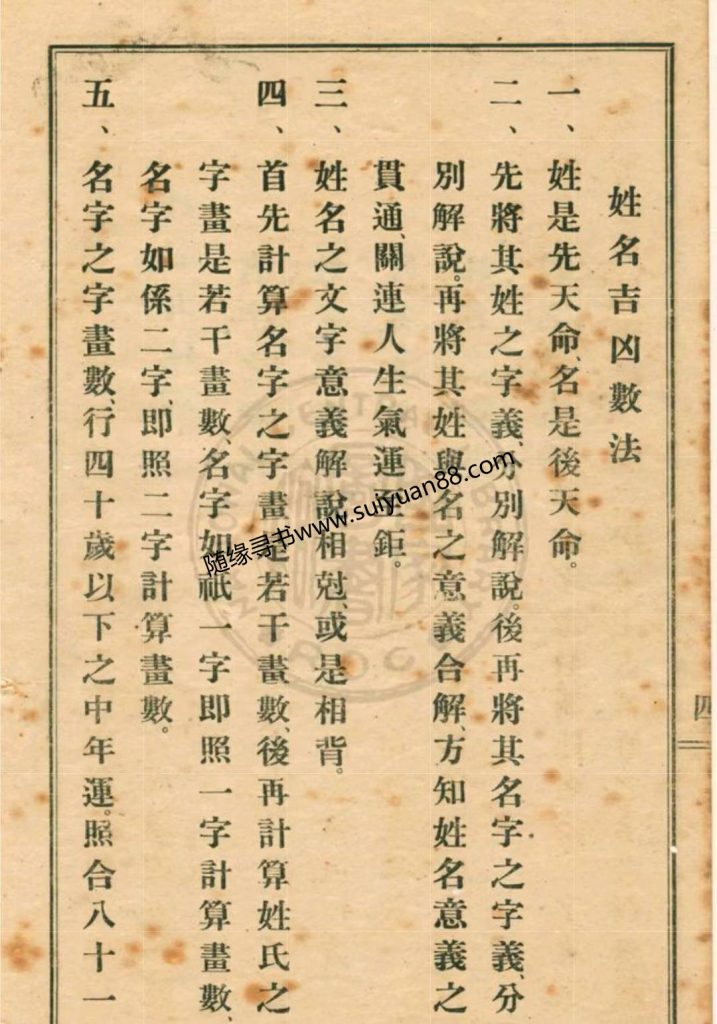 姓名吉凶數法
一、姓是先天命、名是後天命。
二、先將其姓之字義、分別解說。後再將其名字之字義、分
別解說。再將其姓與名之意義合解、方知姓名意義之
貫通、關連人生氣運至鉅。
三、姓名之文字意義解說相尅、或是相背。
四、首先計算名字之字畫是若干畫數、後再計算姓氏之
字畫是若干畫數、名字如祇一字即照一字計算畫數、
名字如係二字、即照二字計算畫數。
五、名字之字畫數、行四十歲以下之中年運。照合八十一
四
随缘寻书www.suiyuan88.com